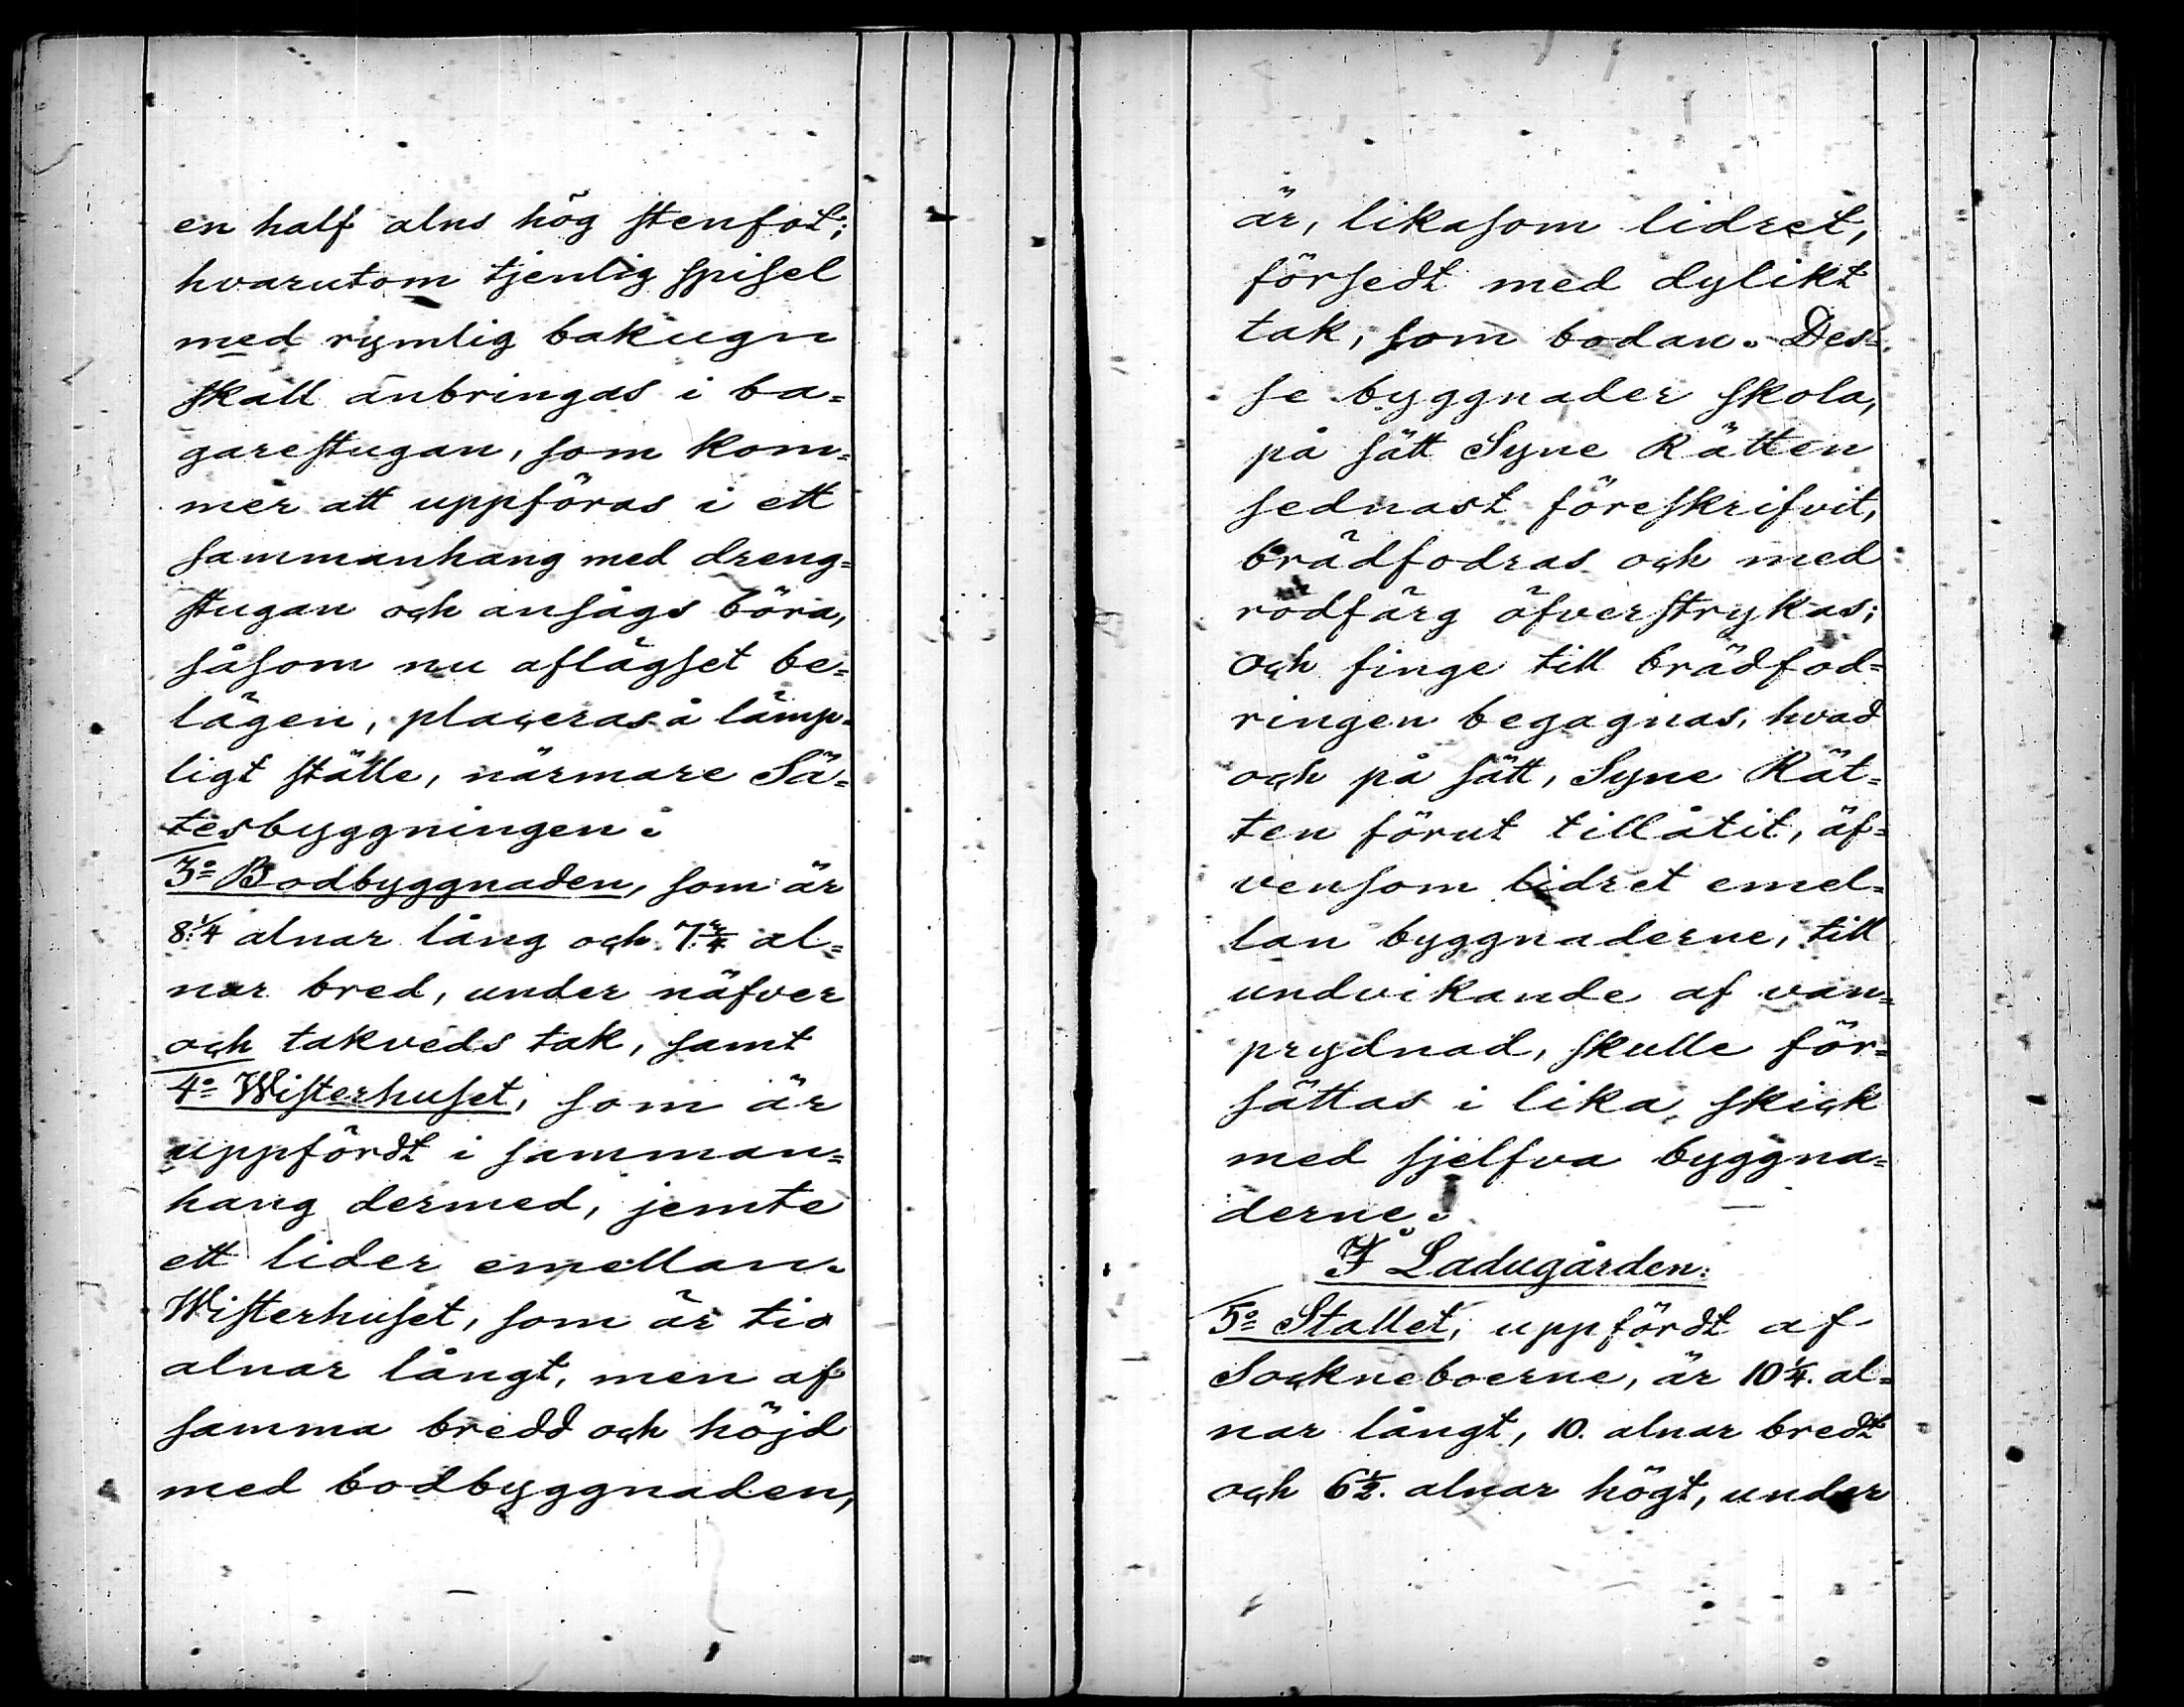 en half alns hög stenfot;
hvarutom tjenlig spisel
med rymlig bakugn
skall anbringas i ba=
garestugan, som kom=
mer att uppföras i ett
sammanhang med dreng=
stugan och ansågs böra,
såsom nu aflägset be=
lägen, placeras å lämp=
ligt ställe, närmare Sä=
tesbyggningen.
3:o Bodbyggnaden, som är
8 1/4 alnar lång och al=
nar bred, under näfver
och takveds tak, samt
4:o Wisterhuset, som är
uppfördt i samman=
hang dermed, jemte
ett lider emellan.
Wisterhuset, som är tio
alnar långt, men af
samma bredd och höjd
med bodbyggnaden,
är, likasom lidret,
försedt med dylikt
tak, som bodan. Des=
se byggnader skola,
på sätt Syne Rätten
sednast föreskrifvit,
brädfodras och med
rödfärg öfverstrykas;
och finge till brädfod=
ringen begagnas, hvad
och på sätt, Syne Rät=
ten förut tillåtit, äf=
vensom lidret emel=
lan byggnaderne, till
undvikande af van=
prydnad, skulle för=
sättas i lika skick
med sjelfva byggna=
derne.
I Ladugården:
5:o Stallet, uppfördt af
Sockneboerne, är 10 1/4. al=
nar långt, 10. alnar bredt
och 6 1/2. alnar högt, under